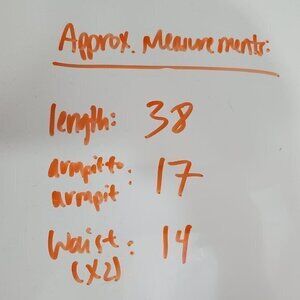 Approx. Measurements:
length: 38
armpit to
armpit: 17
Waist: 14
(x2)